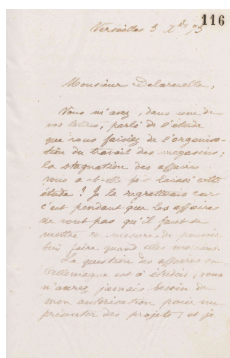 116
Versailles 3 Xbre 73
Monsieur Delaruelle,
Vous m'avez, dans une de
vos lettres, parlé de l'étude
que vous faisiez de l'organisa-
tion du travail des magasins;
la stagnation des affaires
vous a-t-elle fait laisser cette
étude? Je le regretterais car
c'est pendant que les affaires
ne vont pas qu'il faut se
mettre en mesure de pouvoir
bien faire quand elles
La question des affaires en
Allemagne est à étudier, vous
n'aurez jamais besoin de
mon autorisation pour me
présenter des projets; et je